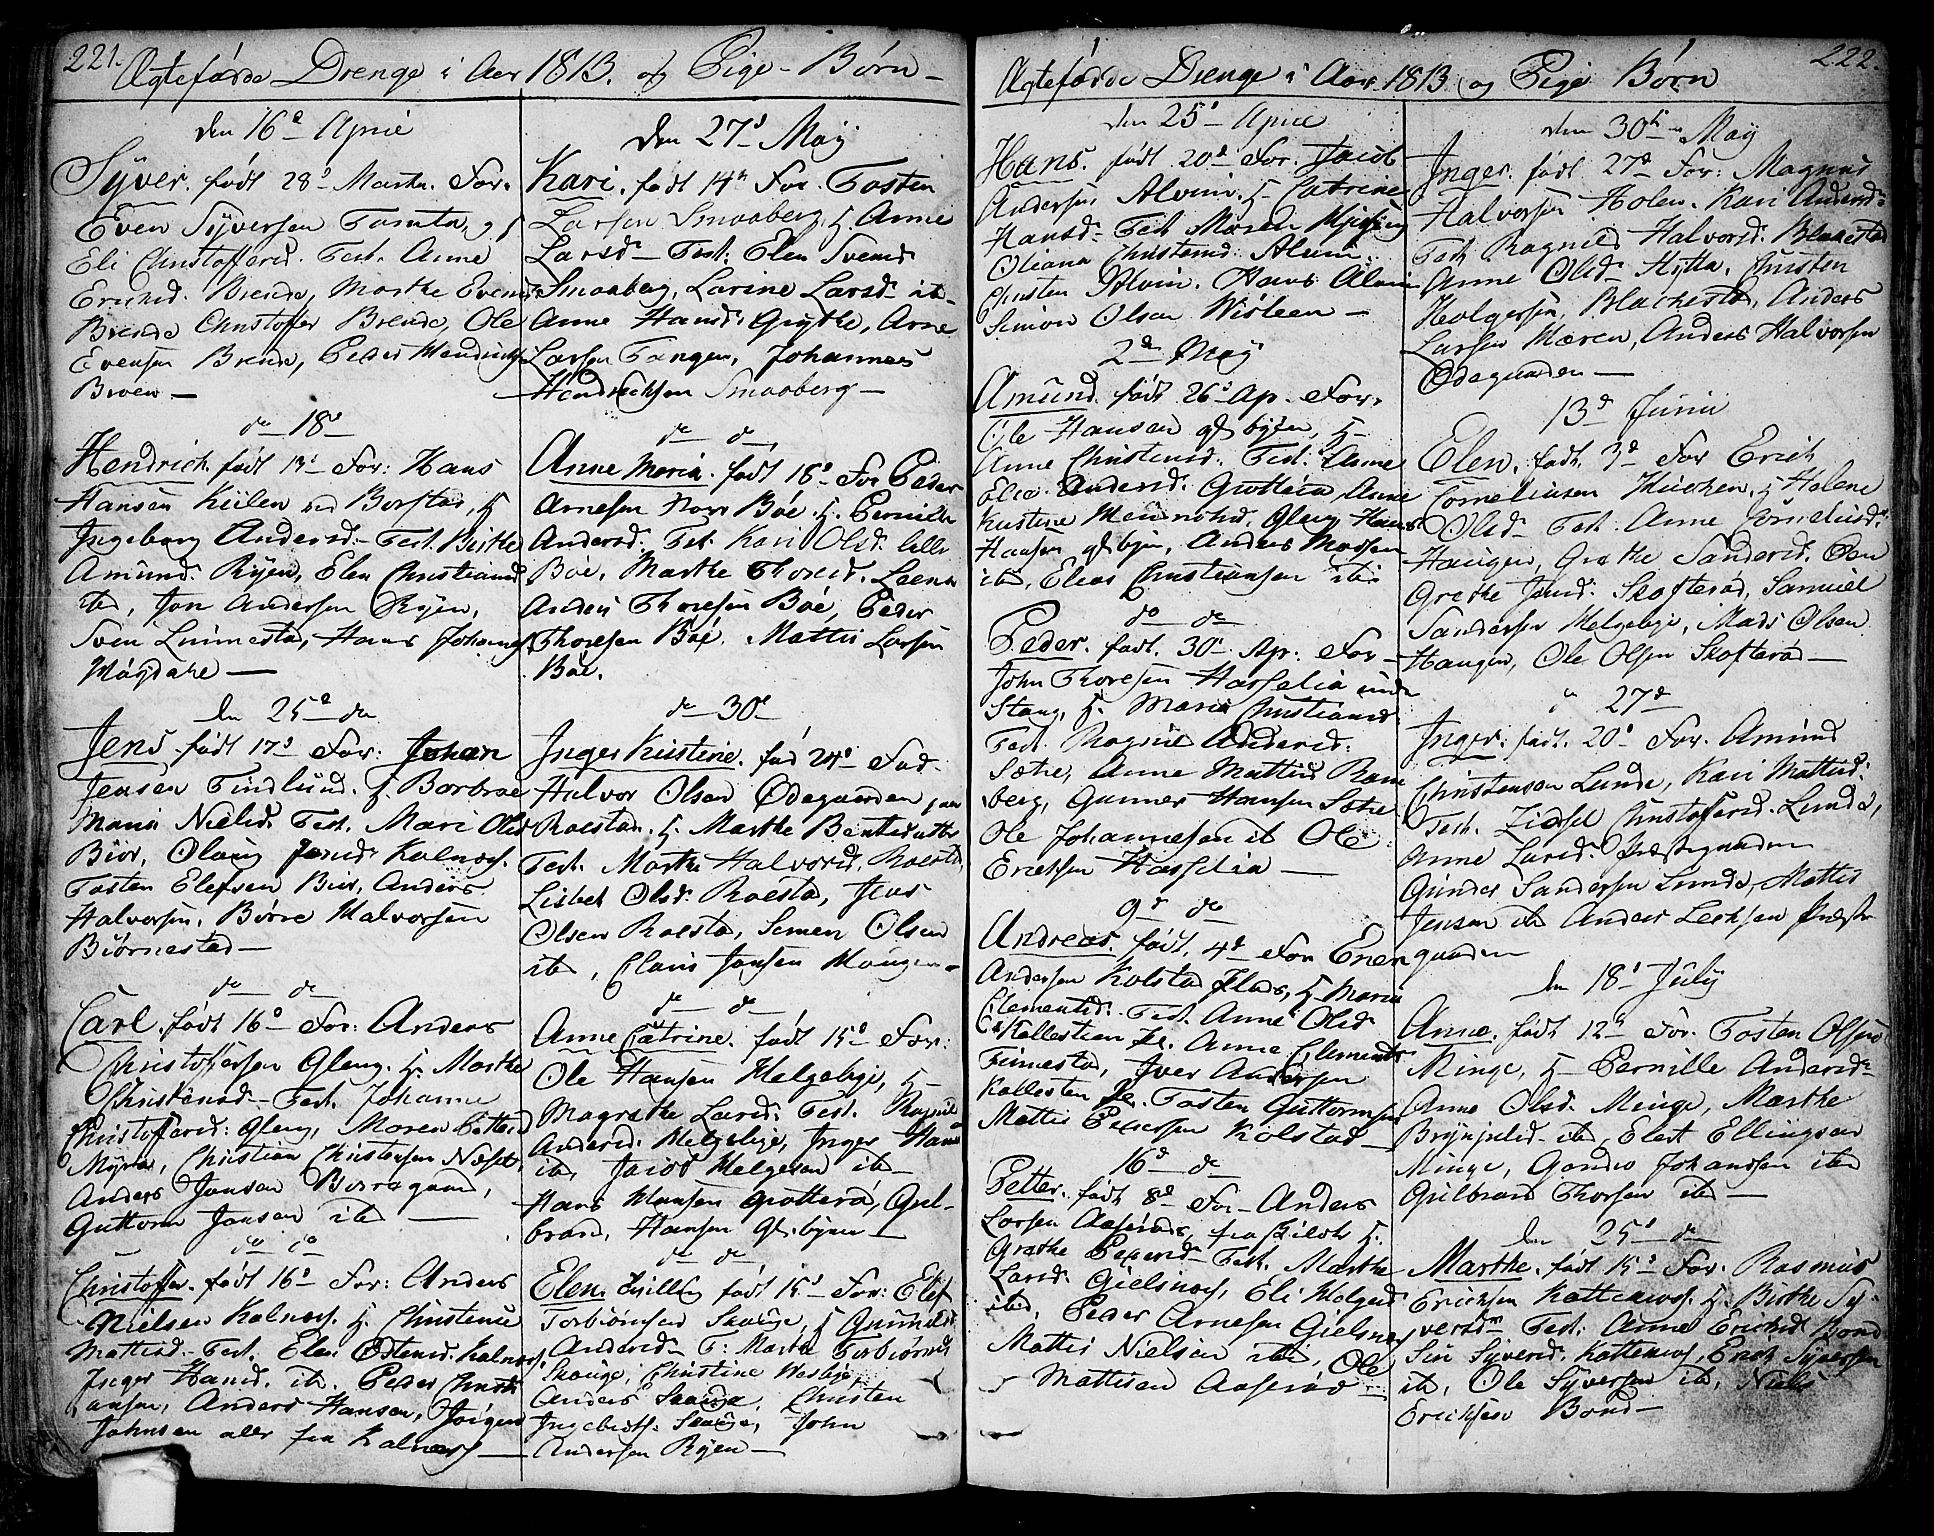 221.
Ægtefødde Drenge i Aar 1813. og Pige-Børn-
den 16d April
Syver. født 28d Marts. For.
Even Syversen Tomta, og
Eli Christoffersd. Test. Anne
Ericksd. Brende, Marthe Evensd
Brende Christoffer Brende, Ole
Evensen Brende, Peder Hendrichsen
Broen -
do 18d
Hendrich født 13d For: Hans
Hansen Kiilen ved Borstad, H
Ingeborg Andersd - Test. Birthe
Amunds. Ryen, Elen Christiansd
ibd, Jon Andersen Ryen,
Sven Linnestad, Hans Johannes
Møgdahl -
den 25d do
Jens født 17d For: Johan
Jensen Findlund. H. Barbrae
Maria Nielsd. Test. Mari Olsd
Bior, Olaug Jensd Kalnes.
Tosten Elefsen Bior, Anders
Halvorsen, Børre Halvorsen
Biørnestad -
do do
Carl. født 16d For: Anders
Christophersen Gleng. H. Marthe
Christensd - Test. Johanne
Christoffersd: Gleng, Maren
Myra, Christian Christensen Næset,
Anders Jensen Borregaard,
Guttorm Jansen ibd -
do do
Christoffer. født 16d For: Anders
Nielsen Kalnes. H. Christense
Mattisd. Test. Elen Kalnes,
Inger Hansd. ib. Peder Christi
ansen, Anders Hansen, Jörgen
Johnsen alle fra Kalnes -
den 27d May
Kari. født 14d For. Tosten
Larsen Smaaberg, H. Anne
Larsd - Test. Elen Svensd
Smaaberg, Larine Larsd ib -
Anne Hansd: Grythe, Arne
Larsen Tangen, Johannes
Hendrichsen Smaaberg -
do d
Anne Maria. født 18d For Peder
Arnesen Nord Böe. H. Pernille
Andersd. Test. Kari Olsd. lille
Böe. Marthe Thoresd. Leena
Anders Thoresen Böe, Peder
Thoresen Böe. Mattis Larsen
Böe.
do 30d
Inger Kirstine. fød 24d Fad.
Halvor Olsen Ødegaarden
Roestad. H. Marthe Bentsdatter
Test. Marthe Halvorsd. Roestad
Lisbet Olsd. Roestad, Jens
Olsen Roestad, Simen Olsen
ibd, Claus Jansen Haugen -
do do
Anne Catrine. født 15d For:
Ole Hansen Helgebye, H
Magrethe Larsd. Test. Ragnild
Andersd. Helgebye, Inger Hans
ibd, Jacob Helgesen ibd -
Hans Hansen Grotterød, Gul-
brand Hansen Glbyen -
do do
Elen Tvilling født 15d For: Elef
Torbiörnsen Skouge, H Gunnild
Andersd - T: Marthe Torbiörnsd
Skouge, Christine Wesbye,
Anders Skouge, Christen
Ingebretss. Skouge, John
Andersen Ryen -
222.
Ægtefødde Drenge i Aar 1813 og Pige Børn
den 25d April
Hans. født 20d For. Jacob
Andersen Alvim. H - Catrine
Hansd - Test Maren
Oliana Christensd Alvim.
Christen Alvim. Hans Alvim
Simon Olsen Wisteen -
2d May
Amund. født 26d Ap. For.
Ole Hansen Glbyen, H
Anne Christensd. Test: Anne
Elea Andersd. Grotterød, Anne
Kirstine Gleng, Hans
Hansen Glbyen, Anders Mossen
ibd, Elias Christiansen ibd
do do
Peder. født. 30d Apr. For -
John Thoresen Hasselia under
Stang, H. Maria Christiansd
Test. Ragnild Andersd:
Sætre, Anne Mattisd Ram
berg, Gunner Hansen Sætre
Ole Johannesen ib Ole
Ericksen Hasselia -
9d do
Andreas. født. 4d For Ener
Andersen Kolstad, H. Maria
Clementsd. Test. Anne Olsd
Kallestien, Anne Clements
Finnestad, Iver Andersen
Kallesten, Tosten Guttormsen
Mattis Pedersen Kolstad -
16d do
Petter. født 8d For - Anders
Larsen Aaserød, fra H.
Grethe Pedersd Test. Marthe
Larsd. Gielsnes, Eli Helgesd
ibd, Peder Arnesen Gielsnes
Mattis Nielsen ibd, Ole
Mattisen Aaserød -
den 30d - May
Inger. født 27d For: Magnus
Halvorsen Holen. Kari Andersd:
Test Ragnild Halvorsd. Blakestad
Anne Olsd. Hytta, Christen
Holgersen, Blackestad, Anders
Larsen Moren, Anders Halvorsen
Ødegaarden -
13d Junii
Elen. født. 3d For Erich
Corneliusen Kirken, H Helene
Olsd - Test. Anne Corneliusd:
Haugen, Grethe Sandersd.
Grethe Jonsd: Skofterød, Samuel
Sandersen Helgebye, Mads Olsen
Haugen, Ole Olsen Skofterød -
27d
Inger. født. 20d For. Amund
Christensen Lunde, Kari Mattisd:
Test. Zidsel Christoffersd. Lunde,
Anne Larsd. Præstegaarden
Gunder Sandersen Lunde, Mattis
Jensen ibd Anders Præste
gaarden
den 18d July
Anne. født 12d For. Tosten Olsen
Minge, H - Pernille Andersd -
Anne Olsd. Minge, Marthe
Brynjulsd - ibd, Elert Ellingsen
Minge, Gonder Johanssen ibd
Gulbrand Thorsen ibd -
den 25d do
Marthe. født 15d For. Rasmus
Ericksen Kattenes. H. Birthe Sy-
versd - Test: Anne Ericksd Bond
Siri Syversd. Kattenes, Erich Syversen
ibd, Ole Syversen ibd, Niels
Ericksen Bond -